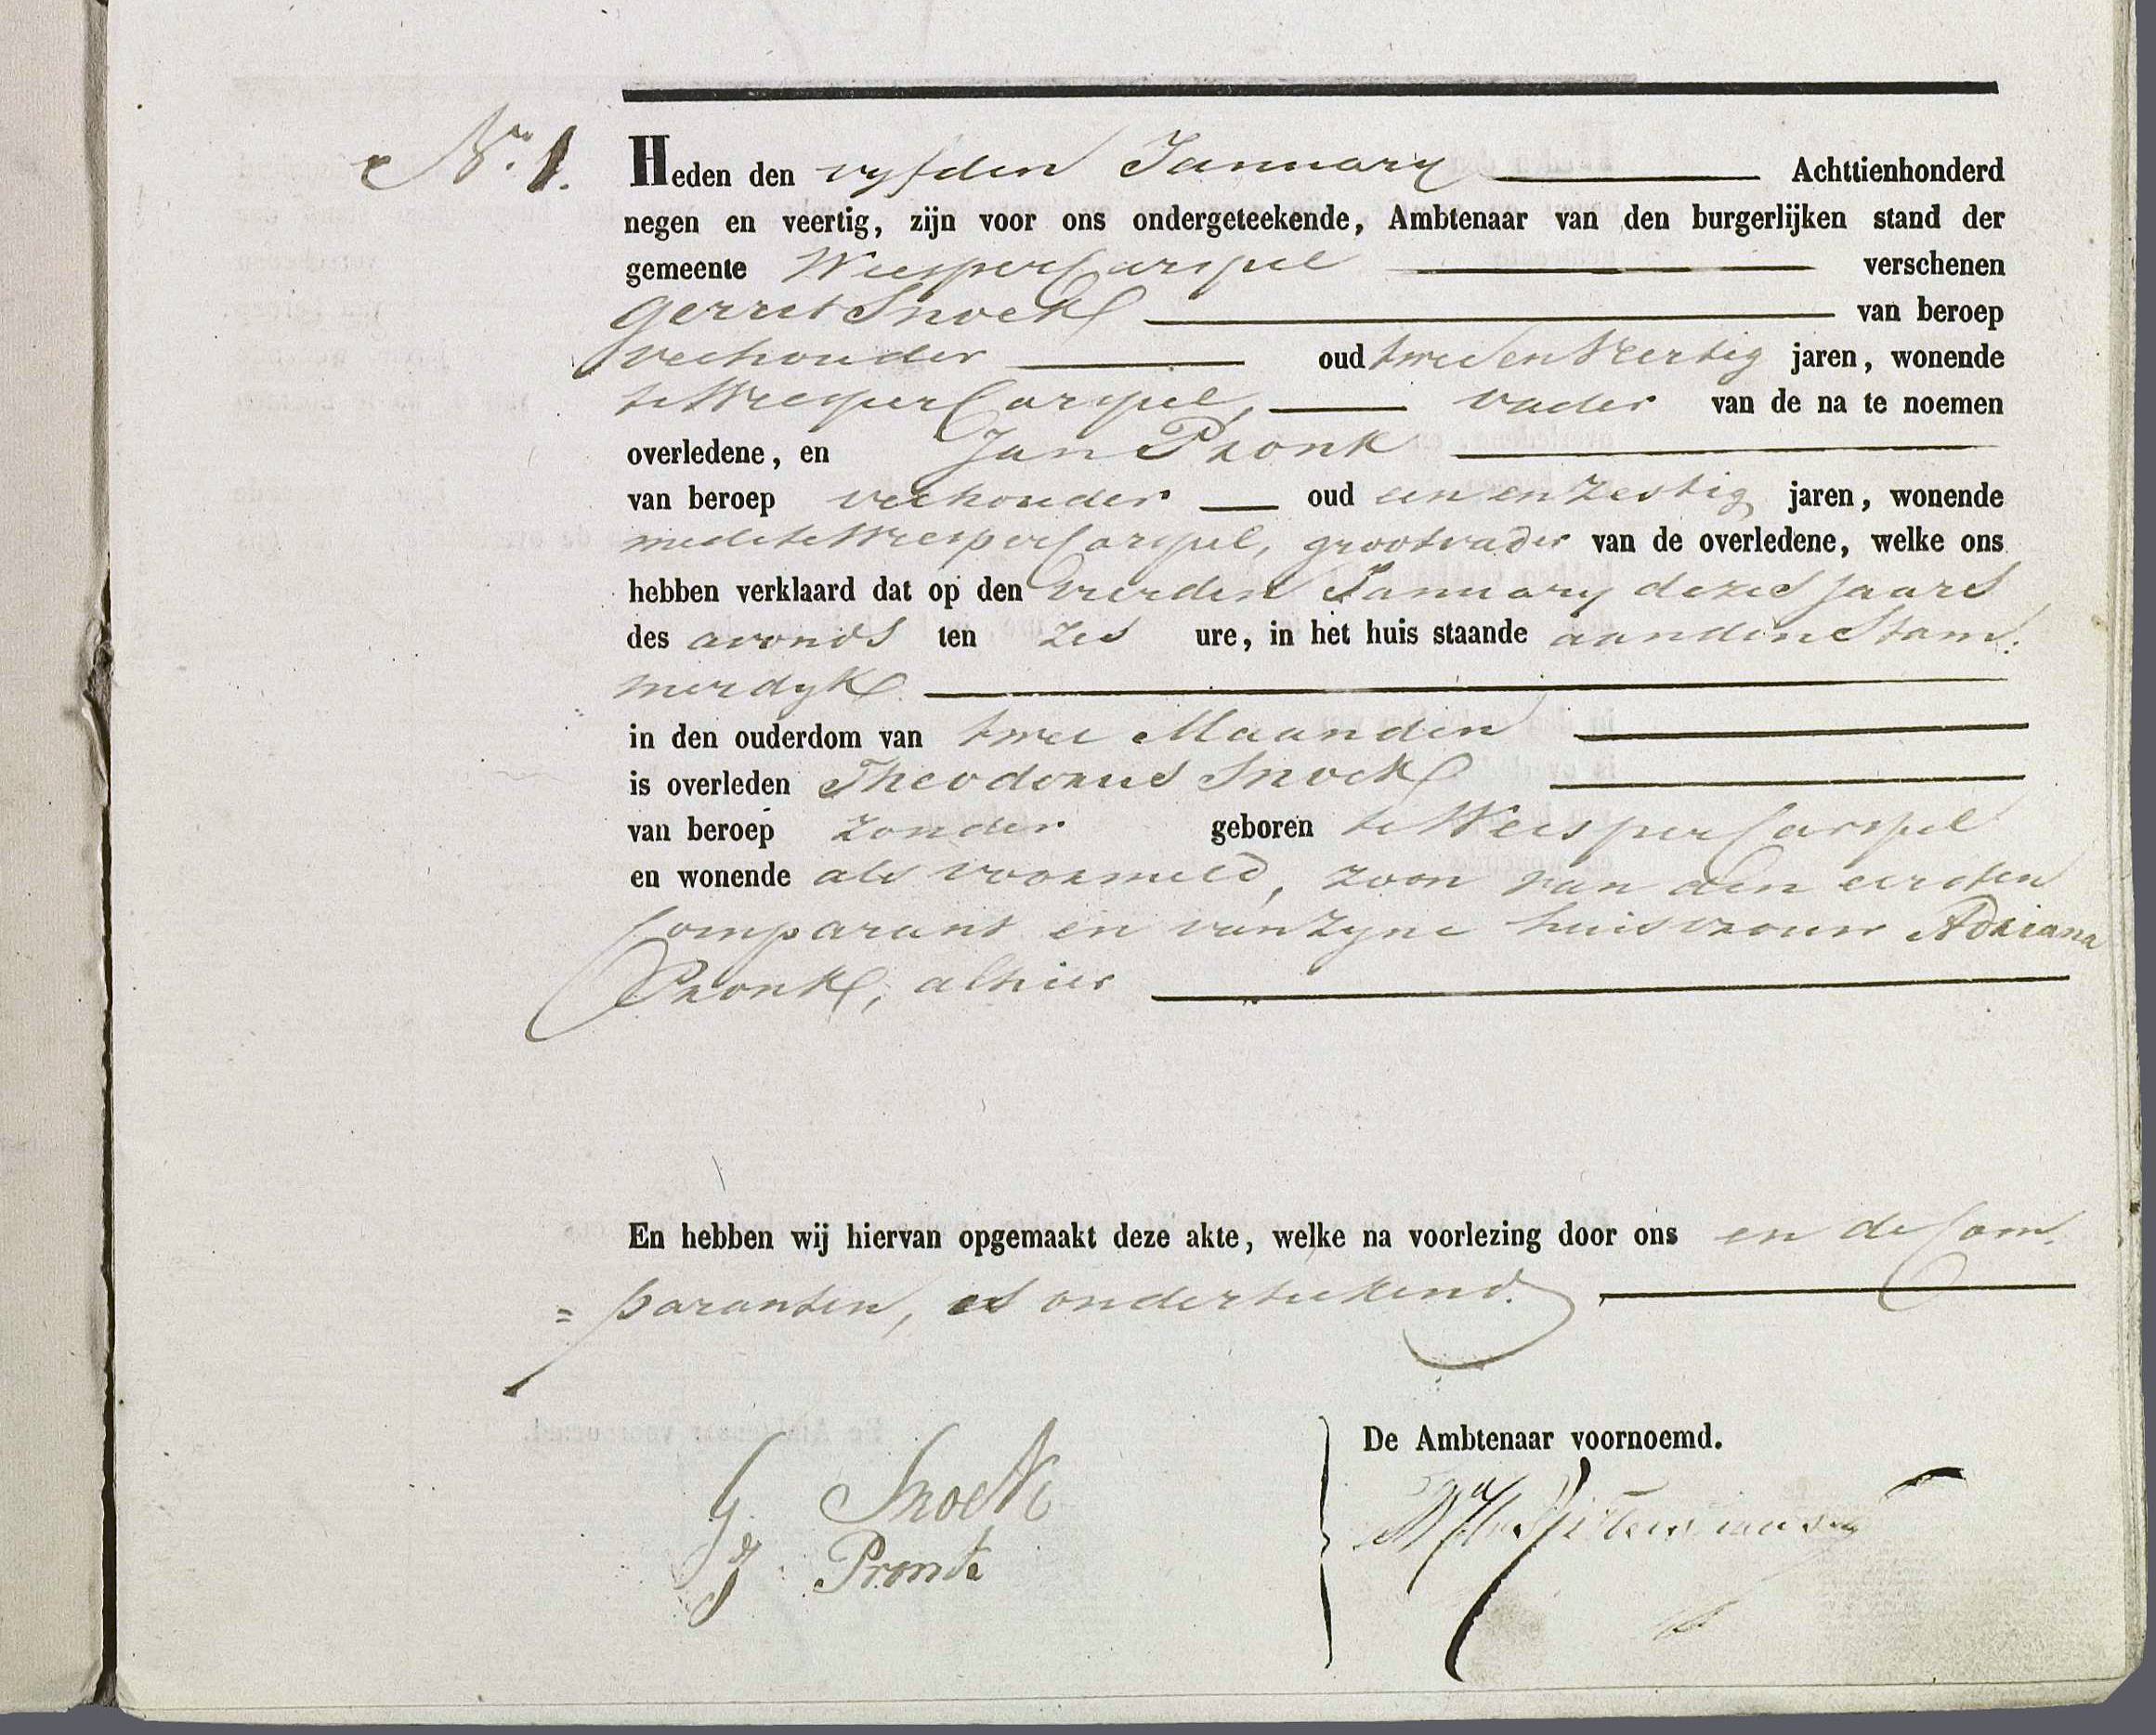 No. 1.
Heden den vyfden January Achttienhonderd
negen en veertig, zijn voor ons ondergeteekende, Ambtenaar van den burgerlijken stand der
gemeente WeesperCarspel verschenen
Gerret Snoek van beroep
veehouder oud twee en veertig jaren, wonende
te WeesperCarspel, vader van de na te noemen
overledene, en Jan Pronk
van beroep veehouder oud een en zestig jaren, wonende
mede te WeesperCarspel, grootvader van de overledene, welke ons
hebben verklaard dat op den vierden January dezes jaars
des avonds ten zes ure, in het huis staande aan den Stam:
merdyk
in den ouderdom van twee Maanden
is overleden Theodorus Snoek
van beroep zonder geboren te WeesperCarspel
en wonende als voormeld, zoon van den eersten
Comparant en van zyne huisvrouw Adriana
Pronk, alhier
En hebben wij hiervan opgemaakt deze akte, welke na voorlezing door ons en de Com:
= paranten, is onderteekend.
De Ambtenaar voornoemd.
G. Snoek
J. Pronk